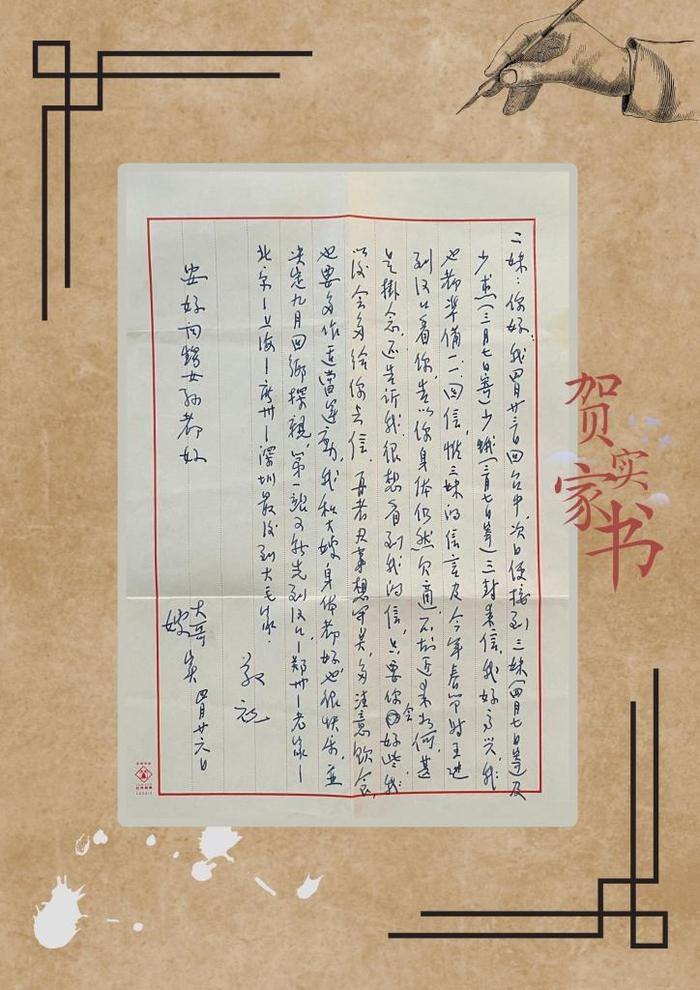 二妹：你好，我四月廿三日回台中，次日便接到三妹（四月七日寄）及
少杰（三月七日寄）少娥（三月七日寄）三封来信，我好高兴，我
也都準備一一回信，惟三妹的信言及今年春节时
到汉口看你，告以你身体仍然欠適，不知近来如何，甚
是掛念，还告诉我，很想看到我的信，只要你会好些，我
以後会多给你去信，再者凡事想宽点，多注意飲食，
也要多作適當運動，我和大嫂身体都好也很快乐，並
决定九月回鄉探親，第一站可能先到汉口—郑州—老家—
北京—上海—廣州—深圳最後到大毛家。
敬祝
安好问女孙都好
大哥
嫂 实 四月廿六日
贺实
家书